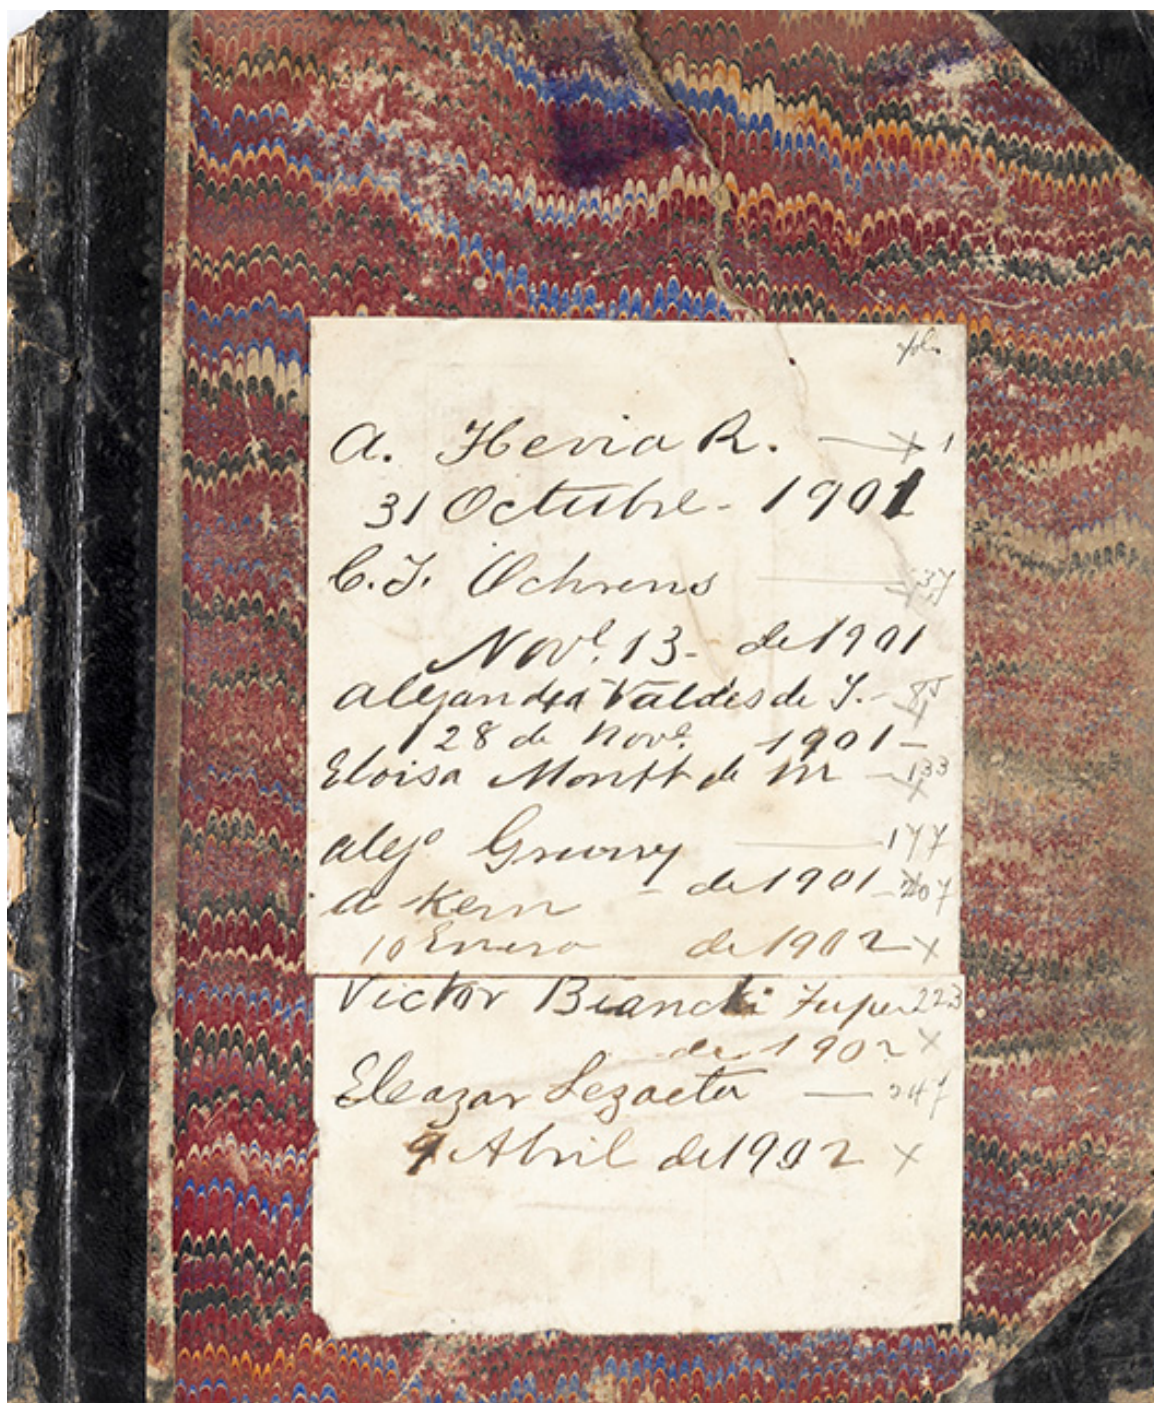 fol.
A. Hevia R. — x 1
31 Octubre - 1901
C. J. Ochrens — 37
Novl. 13 - de 1901
Alejandra Valdes de J. - 85
28 de Nove. 1901 -
Eloisa Montt de M - 133
x
alejo — 177
- de 1901 - 207
A Kern
10 Enero de 1902 x
Victor Bianchi 223
de 1902 x
Eleazar Lezaeta — 247
9 Abril de 1902 x